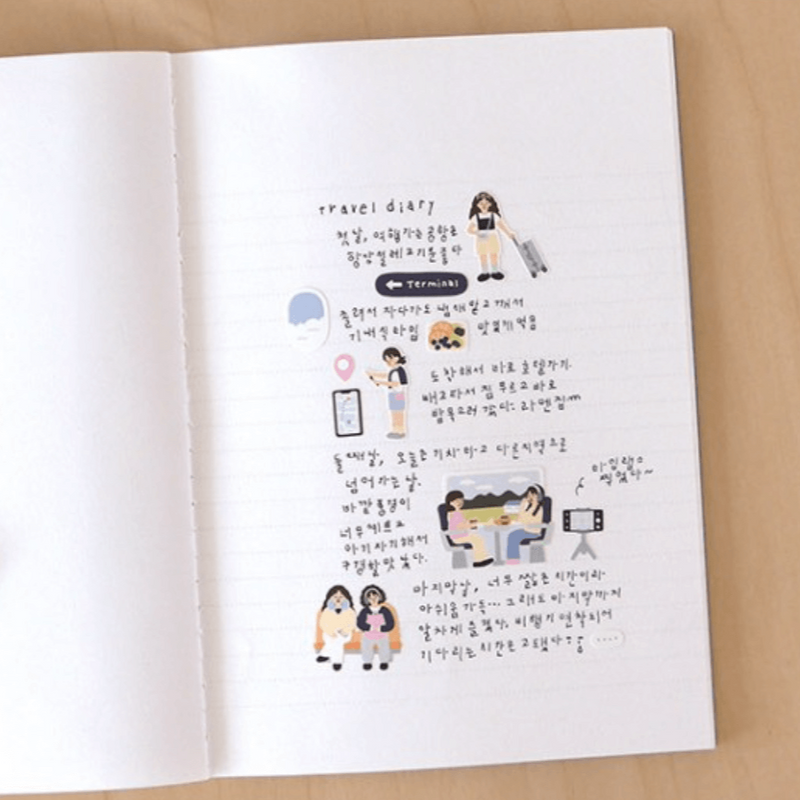 travel diary
첫날, 여행가는 공항은
항상 설레고 기분좋다
← Terminal
졸려서 자다가도 냄새 맡고 깨서
기내식 타임 맛있게 먹음
도착해서 바로 호텔가기.
배고파서 짐 푸르고 바로
밥 먹으러 갔다: 라멘집m
둘째날, 오늘은 기차타고 다른지역으로
넘어가는 날.
바깥 풍경이
너무 예쁘고
아기자기해서
구경할 맛 났다.
타임랩스
찍었다~
마지막날, 너무 짧은 시간이라
아쉬움 가득... 그래도 마지막까지
알차게 즐겼다. 비행기 연착되어
기다리는 시간은 고됐다